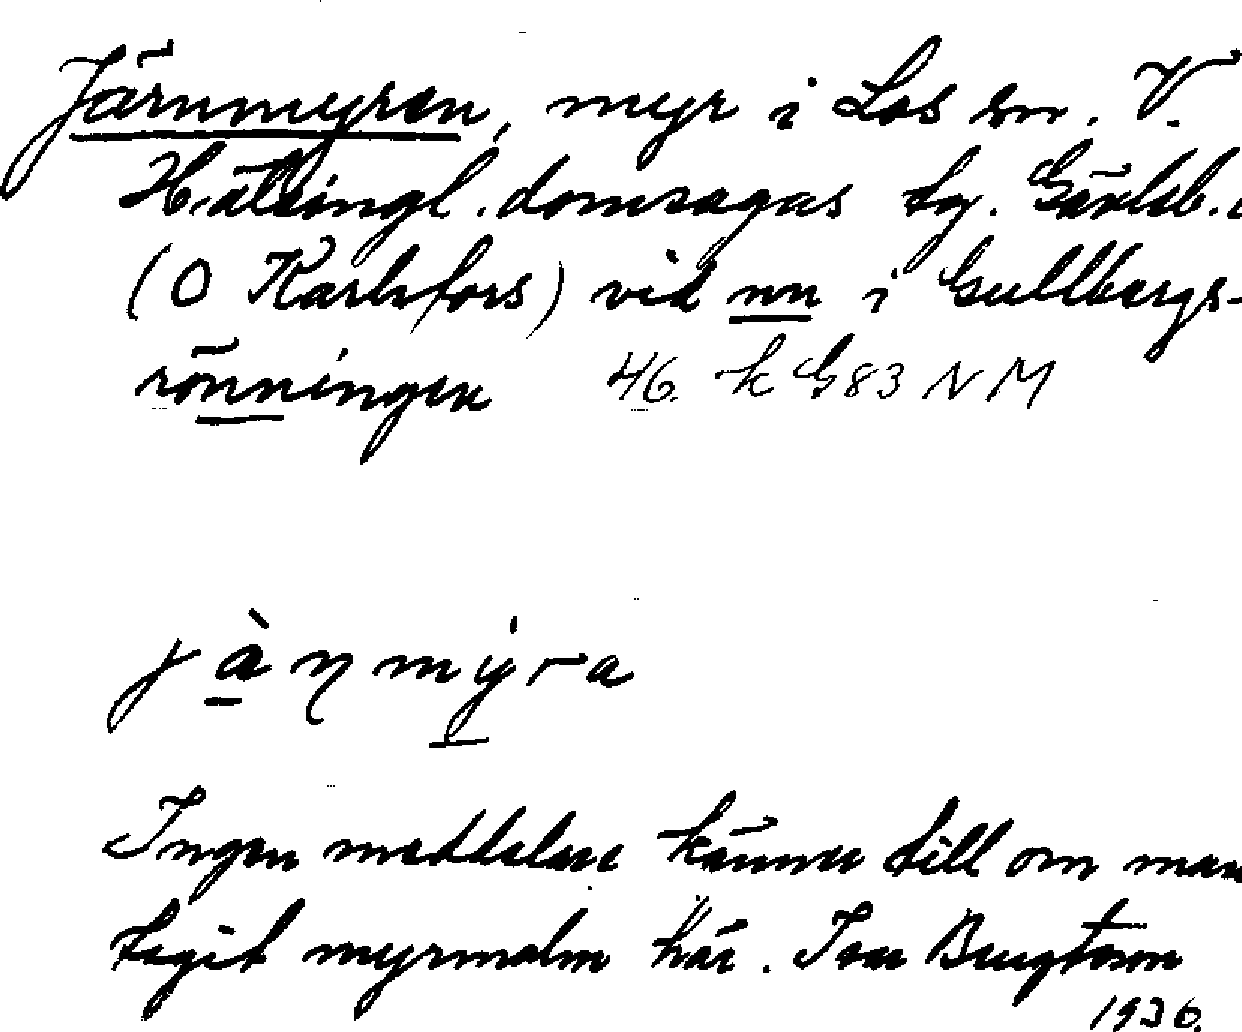 Järnmyren, myr i Los sn. V.
Hälsingl. domsagas tg. Gävleb.
(O Karlsfors) vid nn i Gullbergs-
rönningen 46. k G83 NM
jànmýra
Ingen meddelare känner till om man
tagit myrmalm här. Ivar Bengtsson
1936.